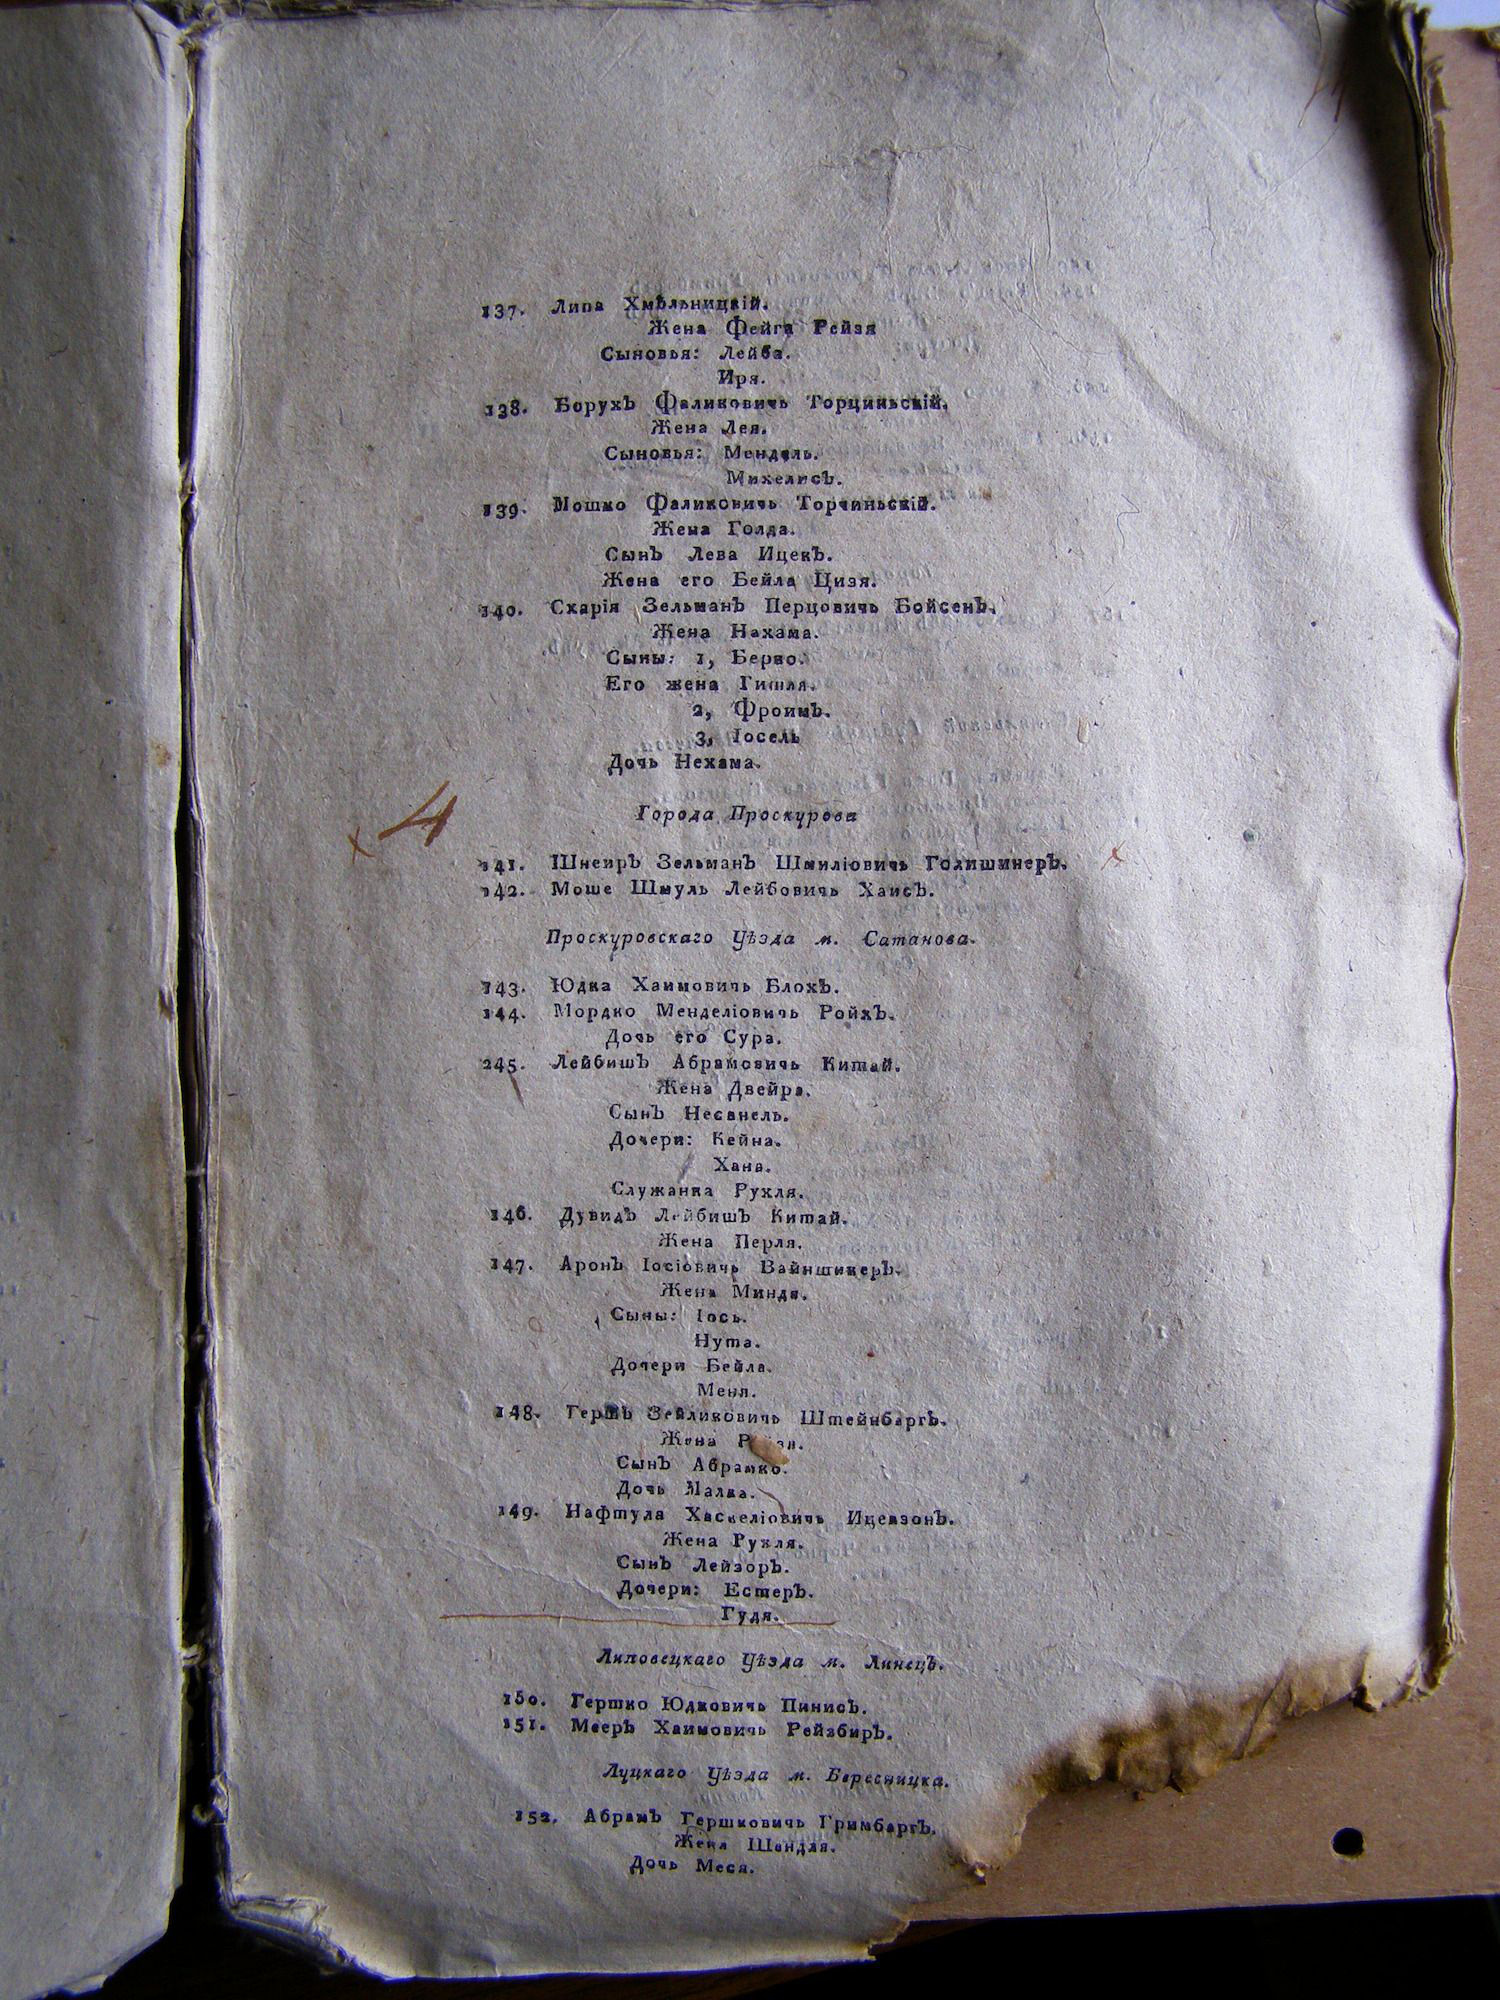 137. Липа Хмѣльницкій.
Жена Фейга Рейзя
Сыновья: Лейба.
Иря.
138. Борухъ Фаликовичь Торциньскій.
Жена Лея.
Сыновья: Мендель.
Михелисъ.
139. Мошко Фаликовичь Торчиньскій.
Жена Голда.
Сынъ Лева Ицекъ.
Жена его Бейла Цизя.
140. Схарія Зельманъ Перцовичь Бойсенъ.
Жена Нахама.
Сыны: 1, Берко.
Его жена Гитля.
2, Фроимъ.
3, Іосель
Дочь Нехама.
Города Проскурова
x 4
141. Шнеиръ Зельманъ Шмиліовичь Голишинеръ. x
142. Моше Шмуль Лейбовичь Хаисъ.
Проскуровскаго Уѣзда м. Сатанова.
143. Юдка Хаимовичь Блохъ.
144. Мордко Менделіовичь Ройхъ.
Дочь его Сура.
245. Лейбишъ Абрамовичь Китай.
Жена Двейра.
Сынъ Несанель.
Дочери: Кейна.
Хана.
Служанка Рухля.
146. Дувидъ Лейбишъ Китай.
Жена Перля.
147. Аронъ Іосіовичь Вайншинкеръ.
Жена Миндя.
Сыны: Іось.
Нута.
Дочери Бейла.
Меня.
148. Гершъ Зейликовичь Штейнбергъ.
Жена
Сынъ Абрамко.
Дочь Малка.
149. Нафтула Хаскеліовичь Ицекзонъ.
Жена Рухля.
Сынъ Лейзоръ.
Дочери: Естеръ.
Гудя.
Липовецкаго Уѣзда м. Линецъ.
150. Гершко Юдковичь Пинисъ.
151. Мееръ Хаимовичь Рейзбиръ.
Луцкаго Уѣзда м. Бересницка.
152. Абрамъ Гершковичь Гримбергъ.
Жена Шендля.
Дочь Меся.